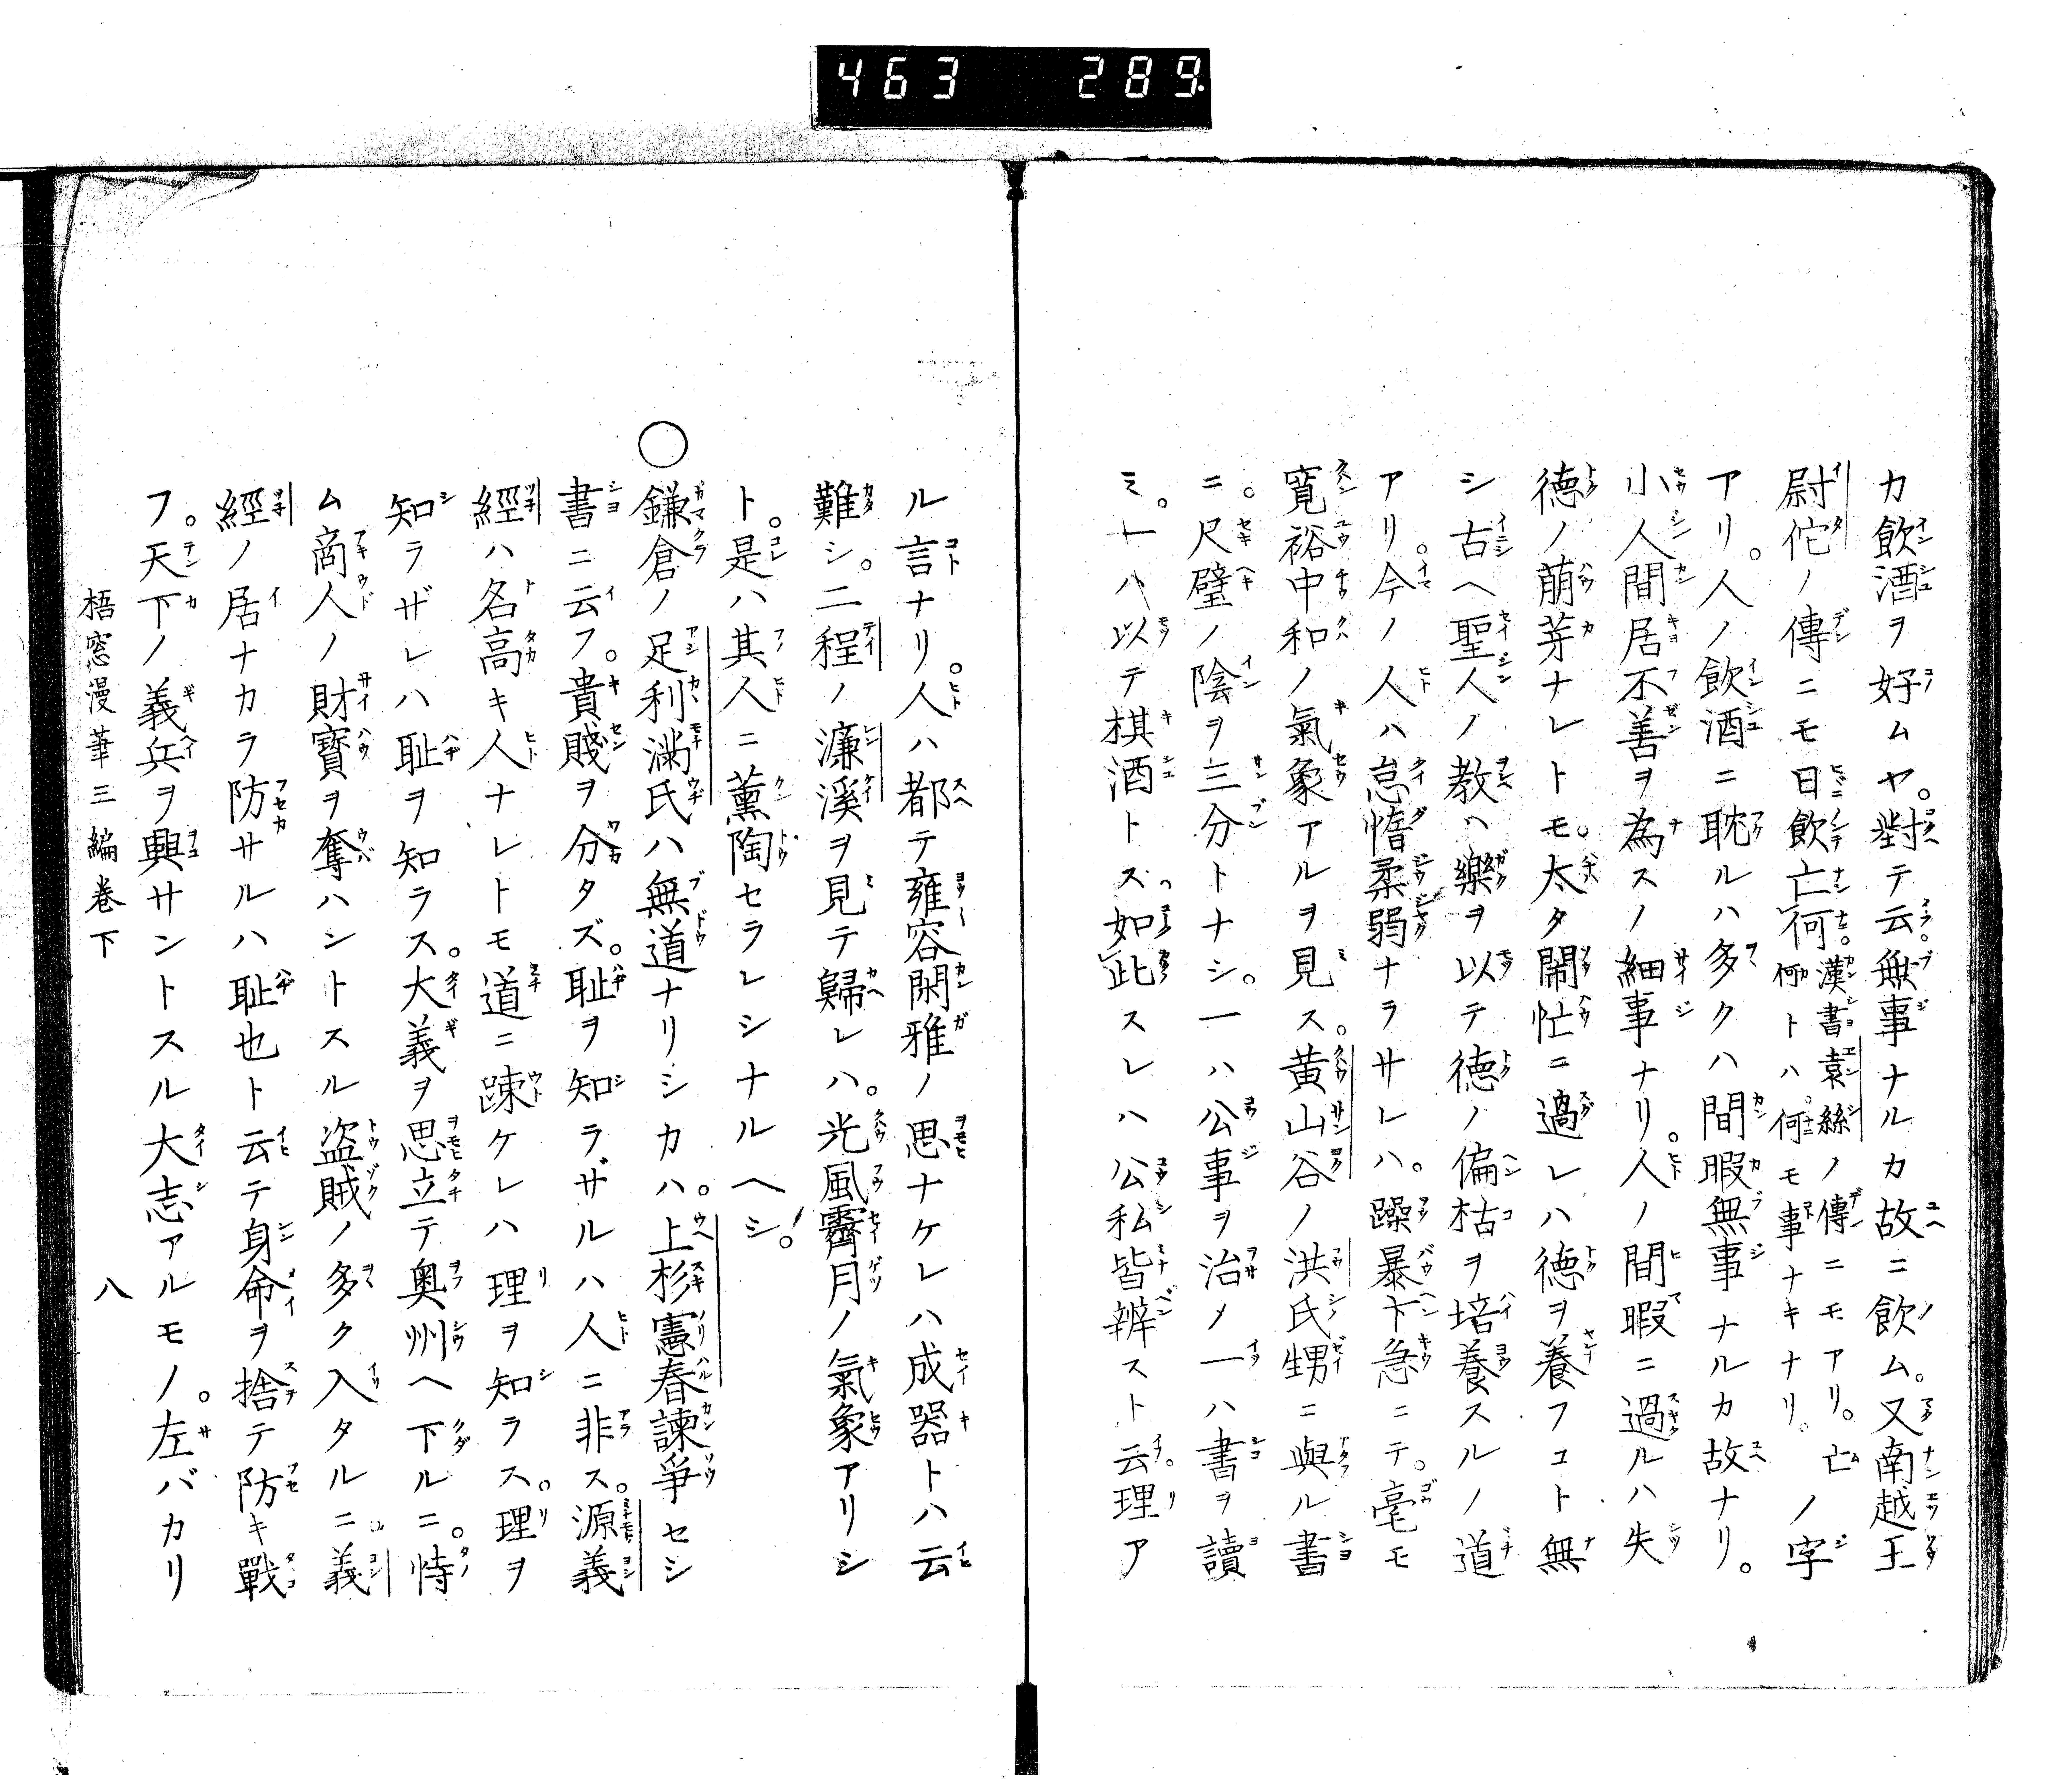 463 289
カ飲酒ヲ好ムヤ。對テ云無事ナルカ故ニ飲ム。又南越王
尉佗ノ傳ニモ日飲亡何漢書袁絲ノ傳ニモアリ。亡ノ字
何トハ。何モ事ナキナリ。
アリ。人ノ飲酒ニ耽ルハ多クハ間暇無事ナルカ故ナリ。
小人間居不善ヲ為スノ細事ナリ。人ノ間暇ニ過ルハ失
德ノ萠芽ナレトモ。太タ閙忙ニ過レハ德ヲ養フコト無
シ古ヘ聖人ノ教ヘ樂ヲ以テ德ノ偏枯ヲ培養スルノ道
アリ。今ノ人ハ怠惰柔弱ナラサレハ。躁暴卞急ニテ。毫モ
寛裕中和ノ氣象アルヲ見ス。黄山谷ノ洪氏甥ニ與ル書
ニ。尺璧ノ陰ヲ三分トナシ。一ハ公事ヲ治メ一ハ書ヲ讀
ミ。一ハ以テ棋酒トス如此スレハ公私皆辨スト云。理ア
ル言ナリ。人ハ都テ雍容閑雅ノ思ナケレハ成器トハ云
難シ。二程ノ濂溪ヲ見テ歸レハ。光風霽月ノ氣象アリシ
ト。是ハ其人ニ薫陶セラレシナルヘシ。
○鎌倉ノ足利滿氏ハ無道ナリシカハ。上杉憲春諫爭セシ
書ニ云フ。貴賤ヲ分タズ。耻ヲ知ラザルハ人ニ非ス。源義
經ハ名高キ人ナレトモ道ニ踈ケレハ理ヲ知ラス。理ヲ
知ラザレハ耻ヲ知ラス。大義ヲ思立テ奥州ヘ下ルニ。恃
ム商人ノ財寶ヲ奪ハントスル盗賊ノ多ク入タルニ義
經ノ居ナカラ防サルハ耻也ト云テ身命ヲ捨テ防キ戰
フ。天下ノ義兵ヲ興サントスル大志アルモノ。左バカリ
梧窓漫筆三編卷下 八